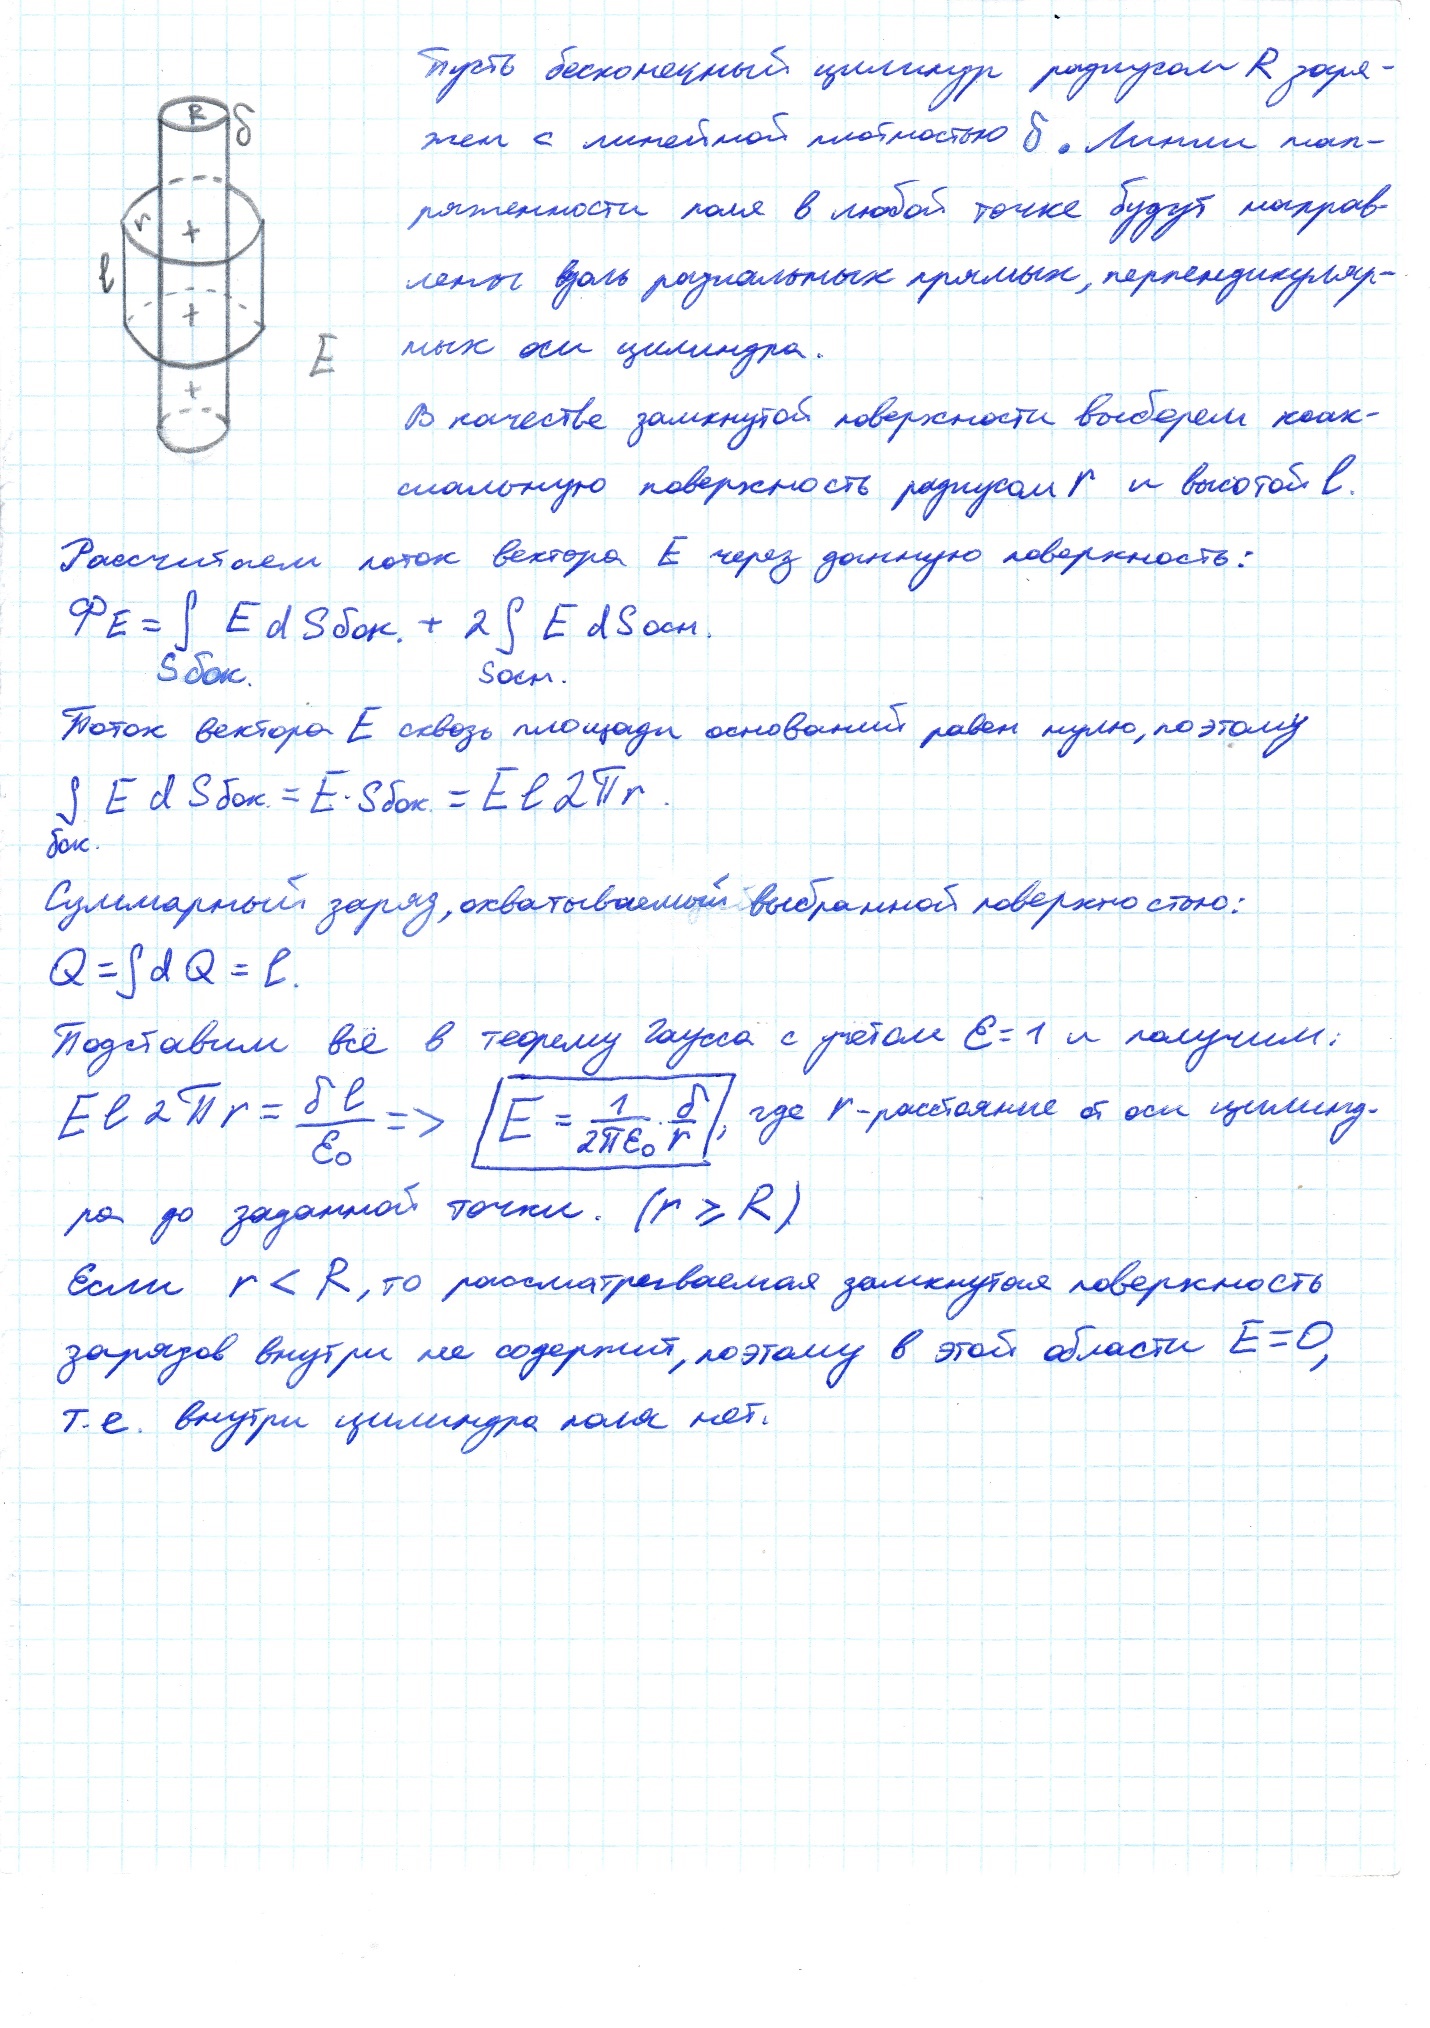 R δ
r +
l
+
E
+
Пусть бесконечный цилиндр радиусом R заря-
жен с линейной плотностью δ. Линии нап-
ряженности поля в любой точке будут направ-
лены вдоль радиальных прямых, перпендикуляр-
ных оси цилиндра.
В качестве замкнутой поверхности выберем коак-
сиальную поверхность радиусом r и высотой l.
Рассчитаем поток вектора E через данную поверхность:
ФE = ∫ E dSбок. + 2∫ E dSосн.
Sбок. Sосн.
Поток вектора E сквозь площади оснований равен нулю, поэтому
∫ E dSбок. = E·Sбок. = E l 2πr.
бок.
Суммарный заряд, охватываемый выбранной поверхностью:
Q = ∫dQ = l.
Подставим всё в теорему Гаусса с учётом ε=1 и получим:
E l 2πr = δl/ε₀ => E = 1/2πε₀ · δ/r, где r-расстояние от оси цилинд-
ра до заданной точки. (r ⩾ R)
Если r < R, то рассматреваемая замкнутая поверхность
зарядов внутри не содержит, поэтому в этой области E=0,
т.е. внутри цилиндра поля нет.